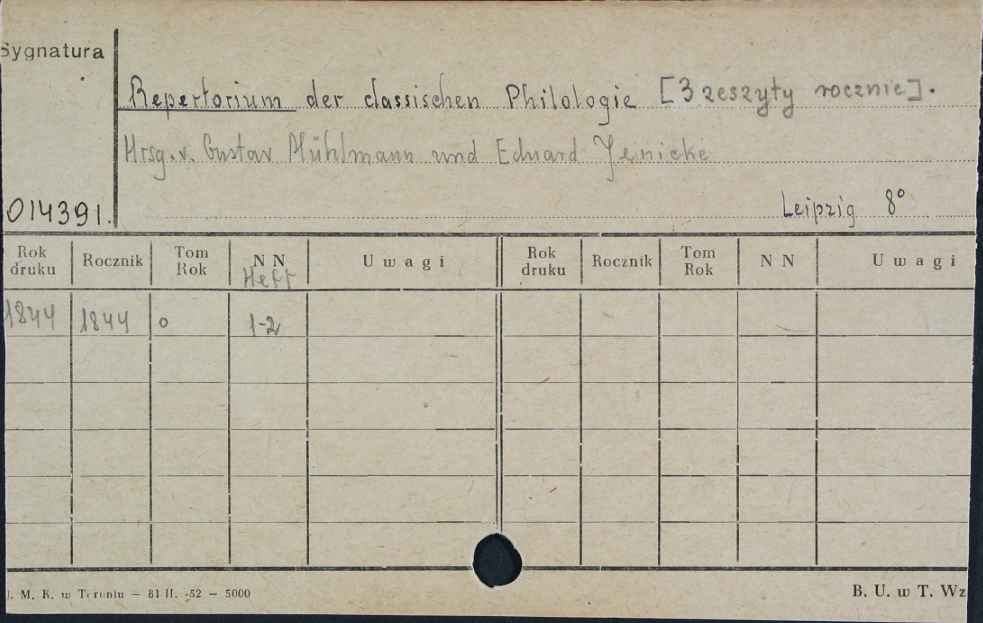 Sygnatura
Repertorium der classischen Philologie [3 zeszyty rocznie].
Hrsg. v. Gustav Mühlmann und Eduard Jenicke
014391.
Leipzig 8°
Rok druku Rocznik Tom Rok NN Heft Uwagi Rok druku Rocznik Tom Rok NN Uwagi
1844 1844 o 1-2
. M. K. w Toruniu — 81 II. -52 — 5000
B. U. w T. Wz